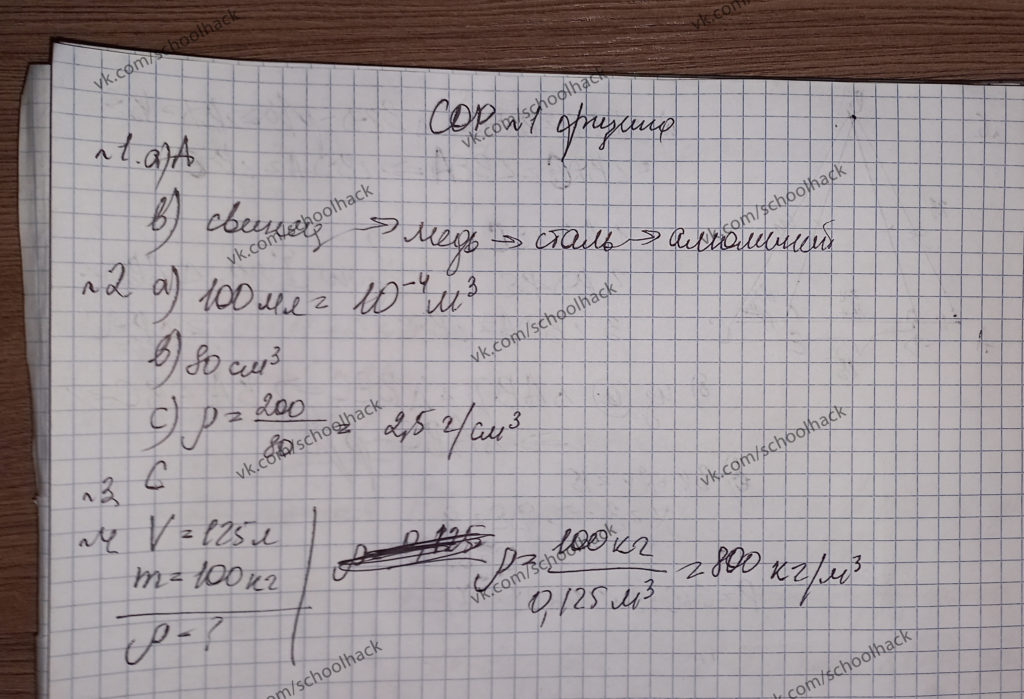 СОР №1 физика
№1. а) А
в) свинец → медь → сталь → алюминий
№2 а) 100 мл = 10⁻⁴ м³
в) 80 см³
с) ρ = 200/80 = 2,5 г/см³
№3 С
№4 V = 125 л
m = 100 кг
ρ - ?
ρ = 100 кг / 0,125 м³ = 800 кг/м³
vk.com/schoolhack
vk.com/schoolhack
vk.com/schoolhack
vk.com/schoolhack
vk.com/schoolhack
vk.com/schoolhack
vk.com/schoolhack
vk.com/schoolhack
vk.com/schoolhack
vk.com/schoolhack
vk.com/schoolhack